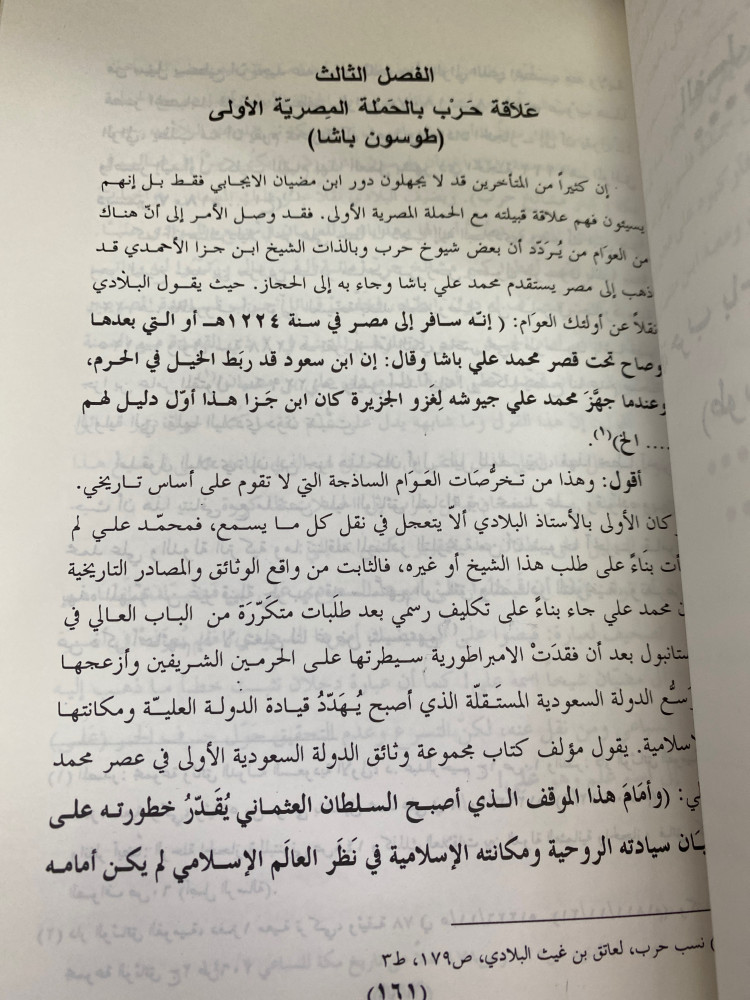 الفصل الثالث
عَلاقة حَرْب بالحَمْلة المِصريّة الأولى
(طوسون باشا)
إن كثيراً من المتأخرين قد لا يجهلون دور ابن مضيان الايجابي فقط بل إنهم
يسيئون فهم علاقة قبيلته مع الحملة المصرية الأولى. فقد وصل الأمر إلى أنّ هناك
من العوَام من يُردّد أن بعض شيوخ حرب وبالذات الشيخ ابن جزا الأحمدي قد
ذهب إلى مصر يستقدم محمد علي باشا وجاء به إلى الحجاز. حيث يقول البلادي
نقلاً عن أولئك العوَام: ( إنّه سافر إلى مصر في سنة ١٢٢٤هـ أو التي بعدها
وصاح تحت قصر محمد علي باشا وقال: إن ابن سعود قد ربَط الخيل في الحرم،
وعندما جهَّزَ محمد علي جيوشه لِغَزو الجزيرة كان ابن جَزا هذا أوّل دليل لهم
.... الخ)(١).
أقول: وهذا من تخرُّصَات العَوَام الساذجة التي لا تقوم على أساس تاريخي.
كان الأولى بالأستاذ البلادي ألاّ يتعجل في نقل كل ما يسمع، فمحمّد علي لم
بنَاءً على طلب هذا الشيخ أو غيره، فالثابت من واقع الوثائق والمصادر التاريخية
محمد علي جاء بناءً على تكليف رسمي بعد طلَبات متكَرّرَة من الباب العالي في
ستانبول بعد أن فقدَتْ الامبراطورية سيطرتها على الحرمين الشريفين وأزعجها
الدولة السعودية المستَقلّة الذي أصبح يُهَدّدُ قيادة الدولة العليّة ومكانتها
لإسلامية. يقول مؤلف كتاب مجموعة وثائق الدولة السعودية الأولى في عصر محمد
لي: (وأمَامَ هذا الموقف الذي أصبح السلطان العثماني يُقَدّرُ خطورته على
سيادته الروحية ومكانته الإسلامية في نَظَر العالَم الإسلامي لم يكن أمامه
) نسب حرب، لعاتق بن غيث البلادي، ص١٧٩، ط٣
(١٦١)